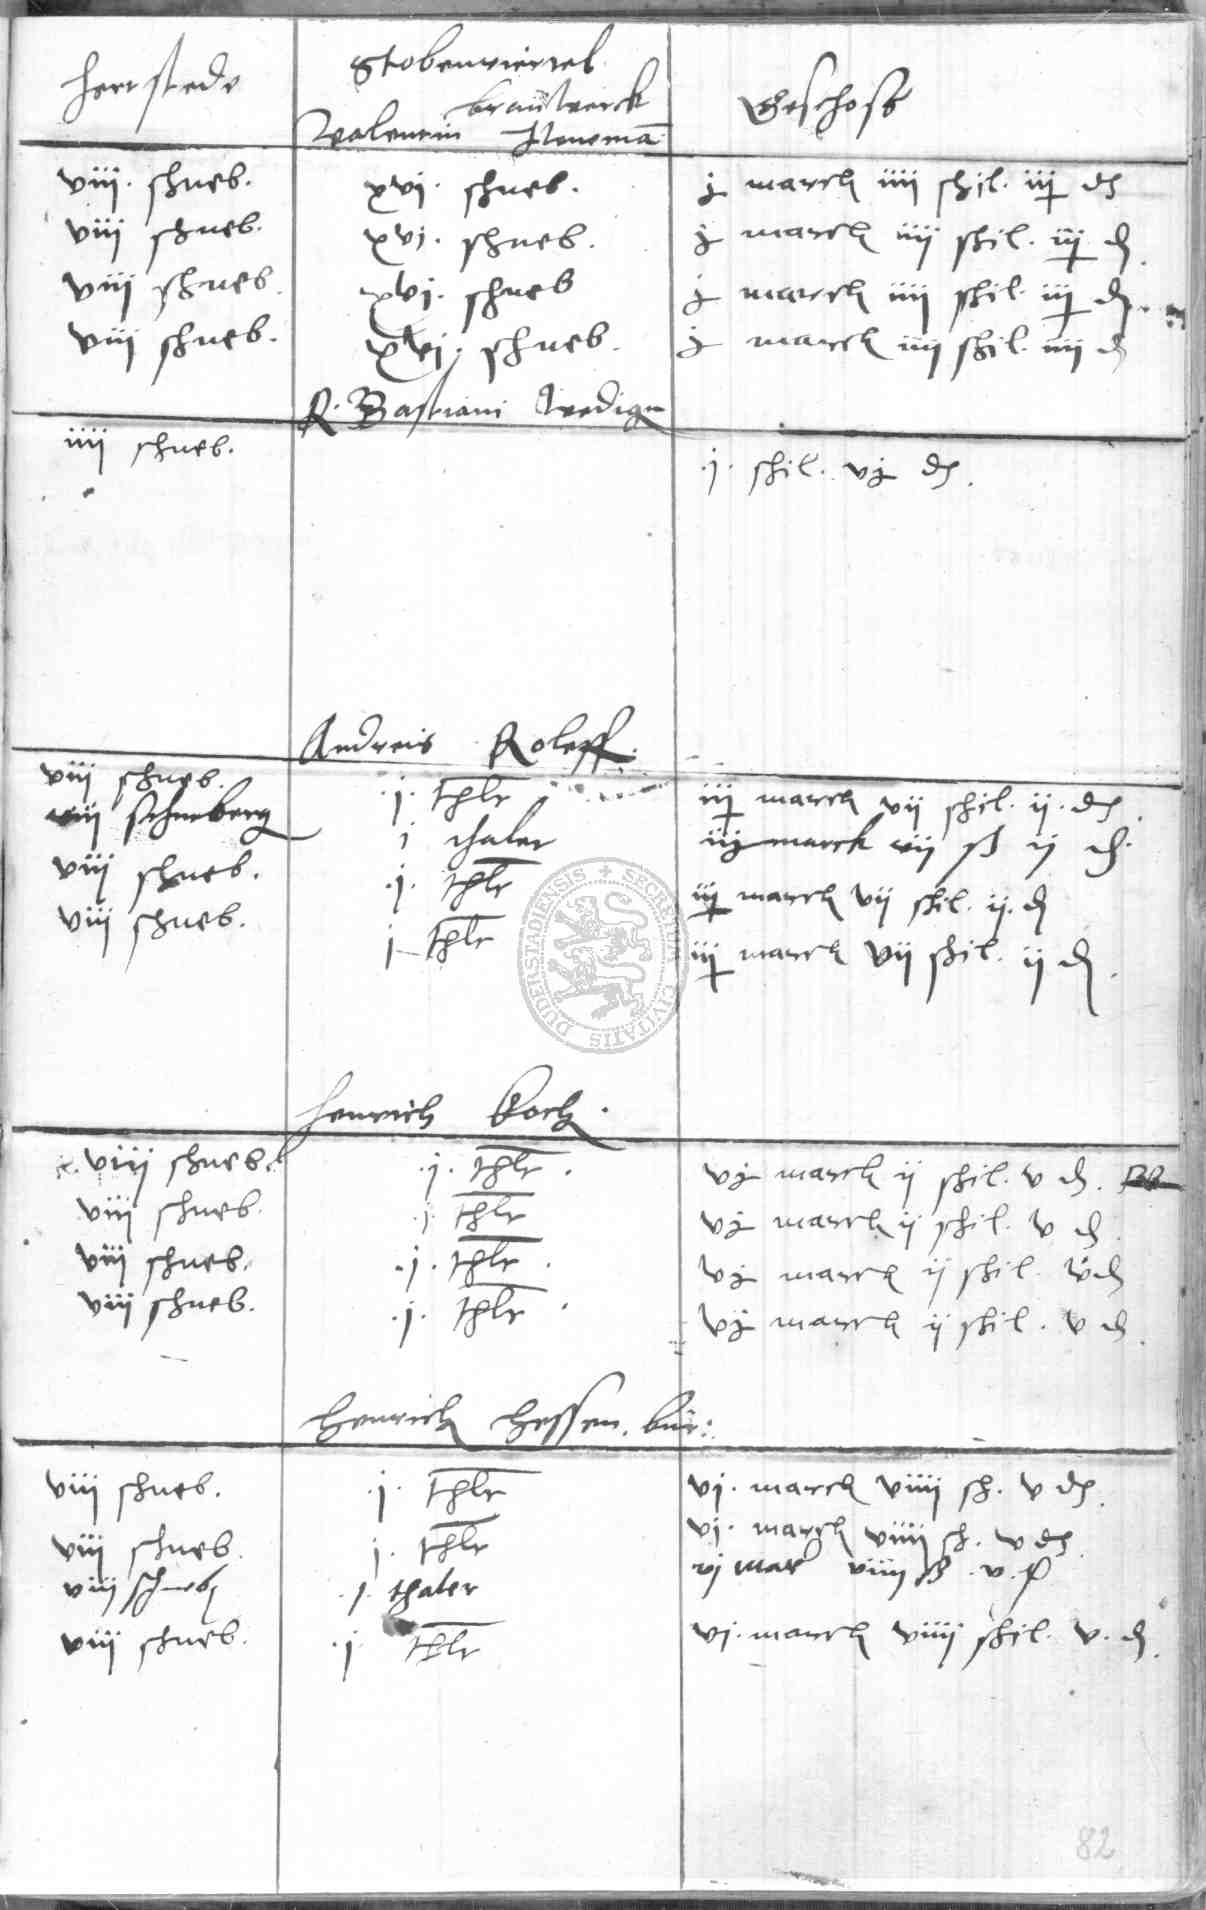 herstede
Stobenviertel
brauwerck
Geschoss
Valentin
viii. schneb. xvi. schneb. j march iiii schil. iij d
viii schneb. xvi. schneb. j march iiii schil. iij d
viii schneb. xvi. schneb j march iiii schil. iij d.
viii schneb. xvi. schneb. j march iiii schil. iiii d
R. Bastiani
iiii schneb. j. schil. vj d.
Andreis Roleff.
viii schneb. j. thlr iij march vii schil. ii. d.
viii schneberg j thaler iij marck vii ß ij d.
viii schneb. j. thlr iij march vii schil. ij. d
viii schneb. j thlr iij march vii schil. ij d.
Henrich Koch.
viii schneb. j. thlr. vj march ij schil. v d.
viii schneb. j thlr vj march ij schil. v d.
viii schneb. j. thlr. vj march ij schil. v d
viii schneb. j. thlr. vj march ij schil. v d.
Henrich Hessen.
viii schneb. j. thlr vi. march viiii sh. v d.
viii schneb. j. thlr vi. march viiii sh. v d.
viii schneb j. thaler vj mar viiii ß. v.
viii schneb. j. thlr vi. march viiii schil. v. d.
SECRETUM CIVITATIS DUDERSTADIENSIS
82